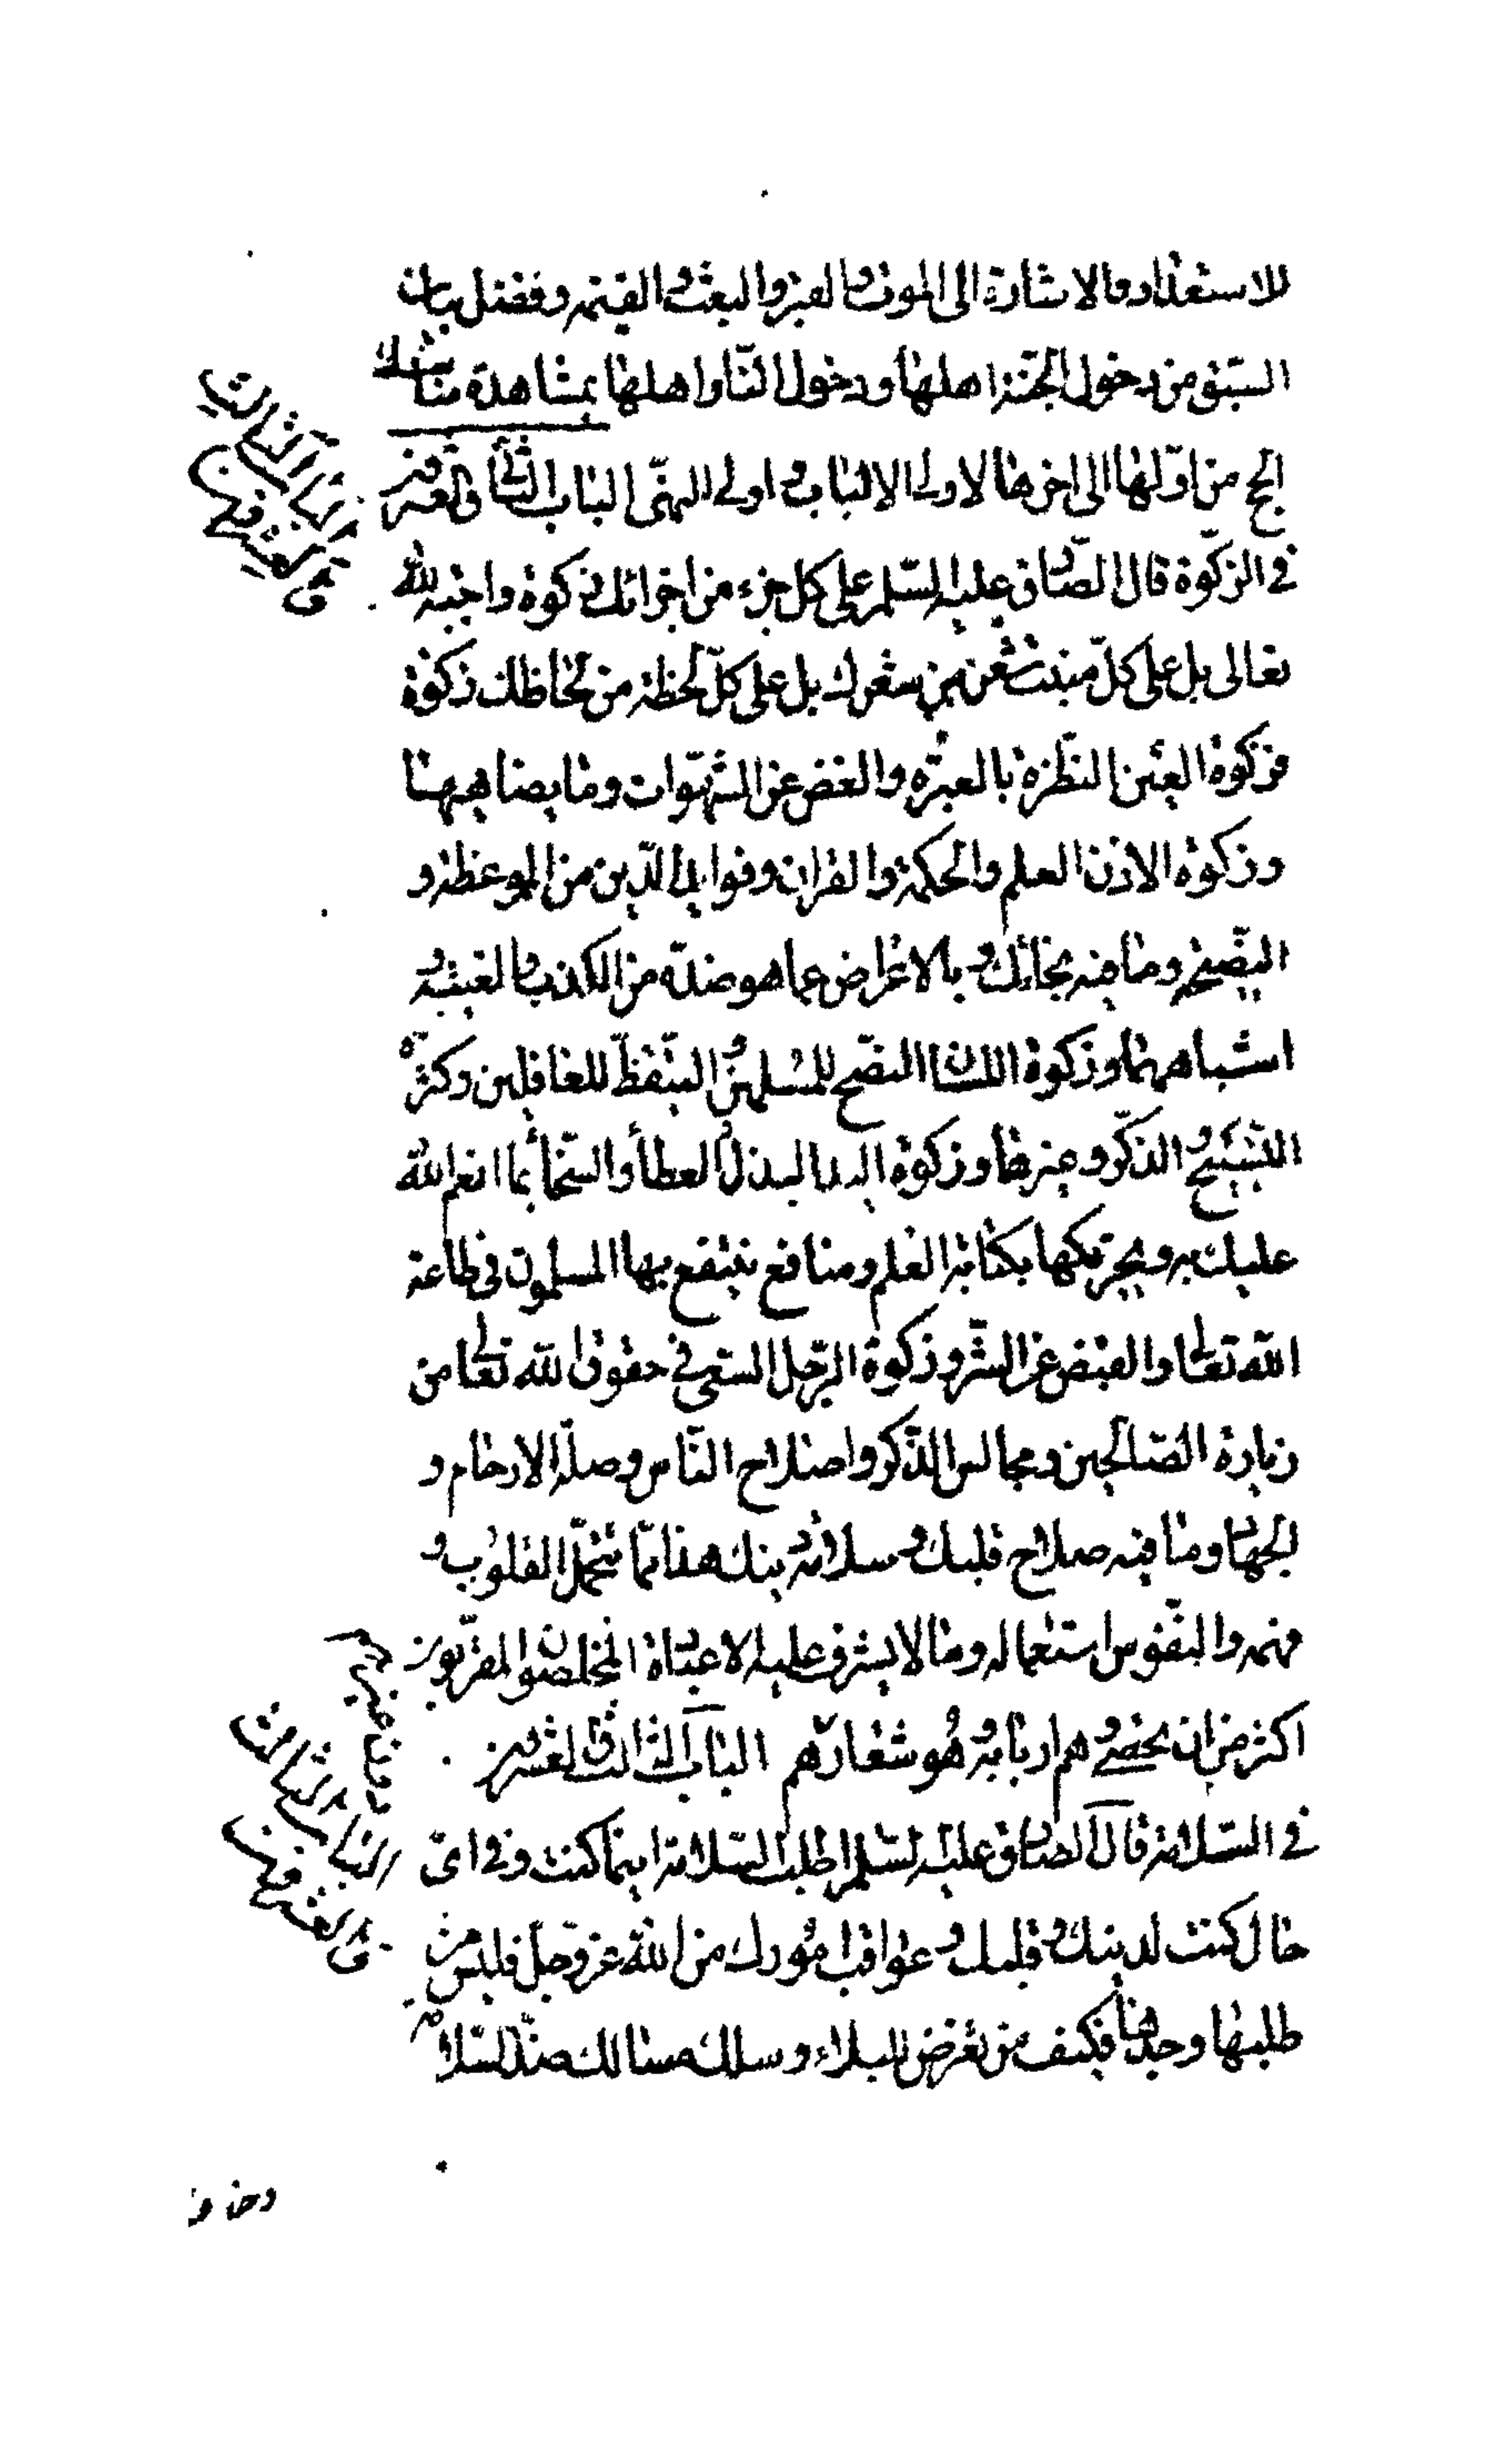 للاستعداد والاشارة الى الموت والقبر والبعث والقيمه وفضل بيان
السبق من دخول الجنة اهلها ودخول النار اهلها بمشاهدة مناسك
الحج من اولها الى اخرها لاولى الالباب واولى النهى الباب الثانى والعشرون
فى الزكوة قال الصادق عليه السلم على كل جزء من اجزائك زكوة واجبه لله
تعالى بل على كل منبت شعر من شعرك بل على كل لحظة من لحاظك زكوة
فزكوة العين النظرة بالعبره والغض عن الشهوات وما يضاهيها
وزكوة الاذن العلم والحكمة والقران وفوايد الدين من الموعظة و
النصيحه وما فيه نجاتك وبالاعراض عما هو ضده من الكذب والغيبه و
اشباههما وزكوة اللسان النصح للمسلمين والتيقظ للغافلين وكثرة
التسبيح والذكر وغيرها وزكوة اليد البذل والعطأ والسخأ بما انعم الله
عليك به وبحريكها بكتابة العلم ومنافع ينتفع بها المسلمون فى طاعة
الله تعالى والقبض عن الشر وزكوة الرجل السعى فى حقوق الله تعالى من
زيارة الصالحين ومجالس الذكر واصلاح الناس وصلة الارحام و
الجهاد وما فيه صلاح قلبك وسلامة دينك هذا مما تتحمل القلوب و
فهمه والنفوس استعماله وما لا يشرف عليه الا عباده المخلصون والمقربون
اكثر من ان يحصى وهم اربابه وهو شعارهم الباب الثالث والعشرون
فى السلامة قال الصادق عليه السلم اطلب السلامة اينما كنت وفى اى
حال كنت لدينك وقلبك وعواقب امورك من الله عز وجل فليس من
طلبها وجدها فكيف من تعرض للبلاء وسلك مسالك ضد السلامة